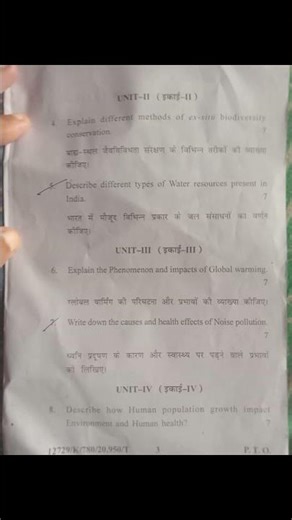 UNIT–II ( इकाई–II )
4. Explain different methods of ex-situ biodiversity
conservation. 7
बाह्य-स्थाने जैवविविधता संरक्षण के विभिन्न तरीकों की व्याख्या
कीजिए।
5. Describe different types of Water resources present in
India. 7
भारत में मौजूद विभिन्न प्रकार के जल संसाधनों का वर्णन
कीजिए।
UNIT–III ( इकाई–III )
6. Explain the Phenomenon and impacts of Global warming.
7
ग्लोबल वार्मिंग की परिघटना और प्रभावों की व्याख्या कीजिए।
7. Write down the causes and health effects of Noise pollution.
7
ध्वनि प्रदूषण के कारण और स्वास्थ्य पर पड़ने वाले प्रभावों
को लिखिए।
UNIT–IV ( इकाई–IV )
8. Describe how Human population growth impact
Environment and Human health? 7
12729/K/780/20,950/T 3 P. T. O.